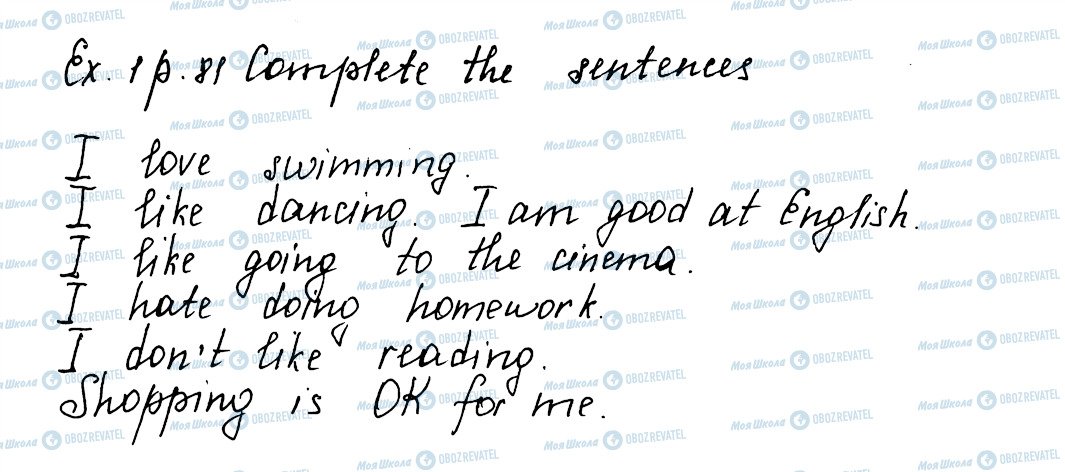 Ex. 1 p. 81 Complete the sentences
I love swimming.
I like dancing. I am good at English.
I like going to the cinema.
I hate doing homework.
I don't like reading.
Shopping is OK for me.